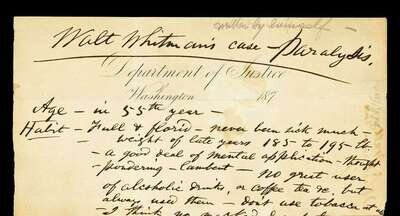 written by himself –
Walt Whitman's case – Paralysis.
Department of Justice
Washington 187
Age – in 55th year –
Habit – Full & florid – never been sick much –
– weight of late years 185 to 195 lb.
– a good deal of mental application – thought
– pondering – – no great user
of alcoholic drinks, or coffee tea &c. but
always used them – Don't use tobacco at all
– I think no